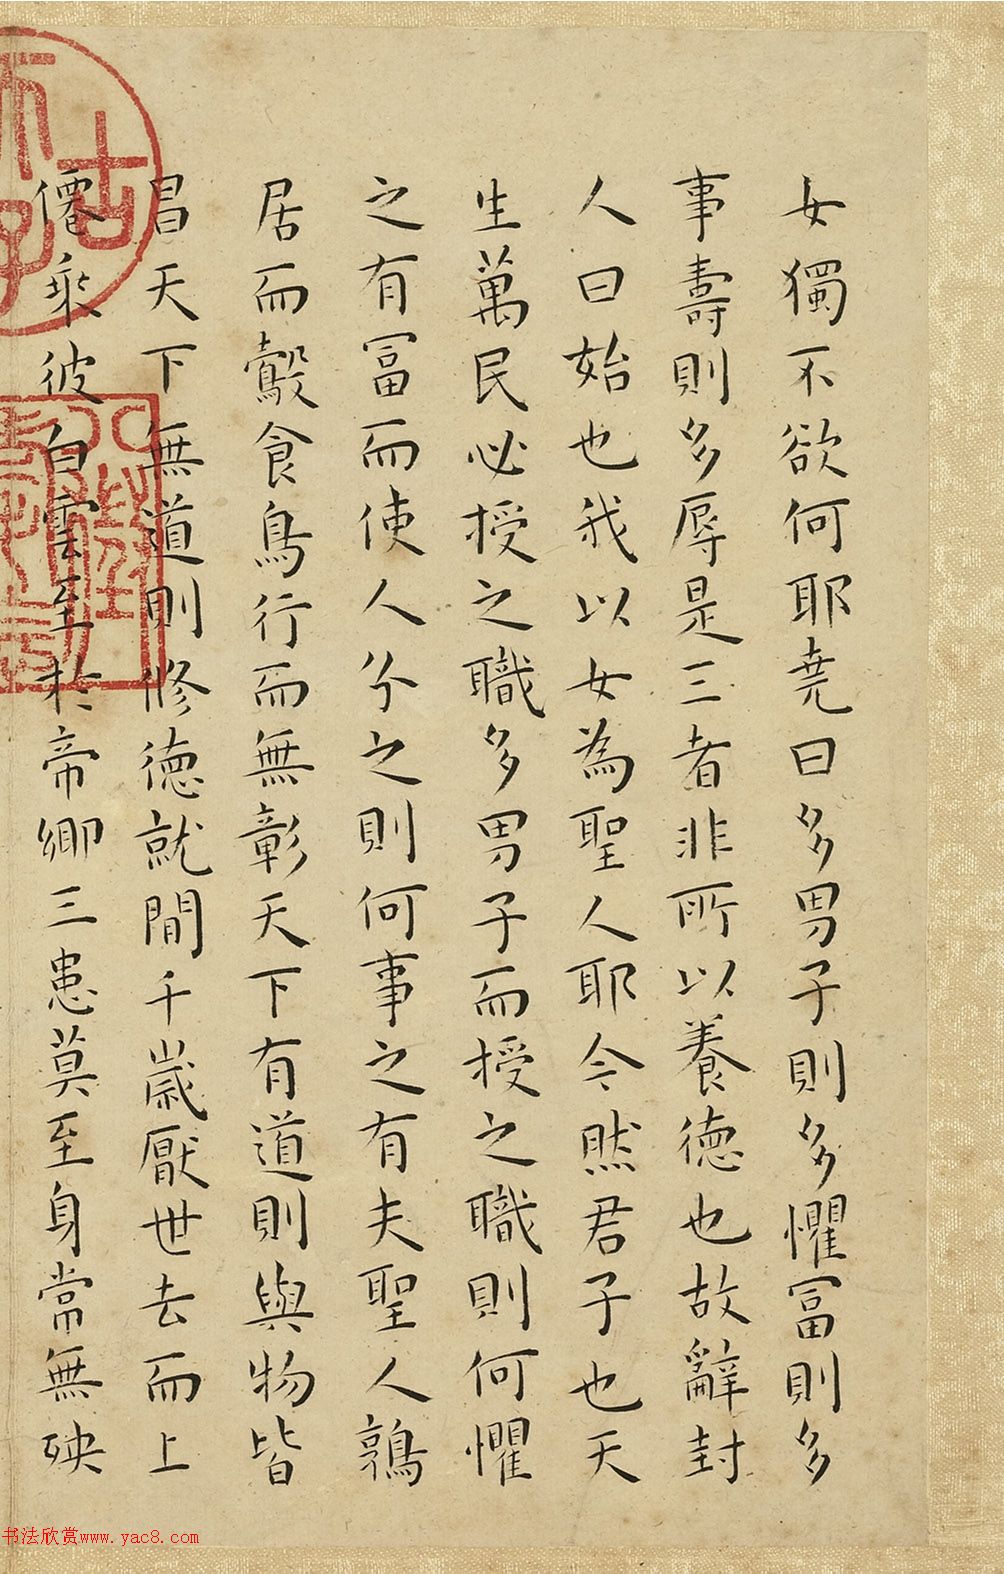 女獨不欲何耶尭曰多男子則多懼冨則多
事壽則多辱是三者非所以養德也故辭封
人曰始也我以女為聖人耶今然君子也天
生萬民必授之職多男子而授之職則何懼
之有冨而使人分之則何事之有夫聖人鶉
居而鷇食鳥行而無彰天下有道則與物皆
昌天下無道則修德就閒千歲厭世去而上
僊乘彼白雲至於帝鄉三患莫至身常無殃
书法欣赏www.yac8.com